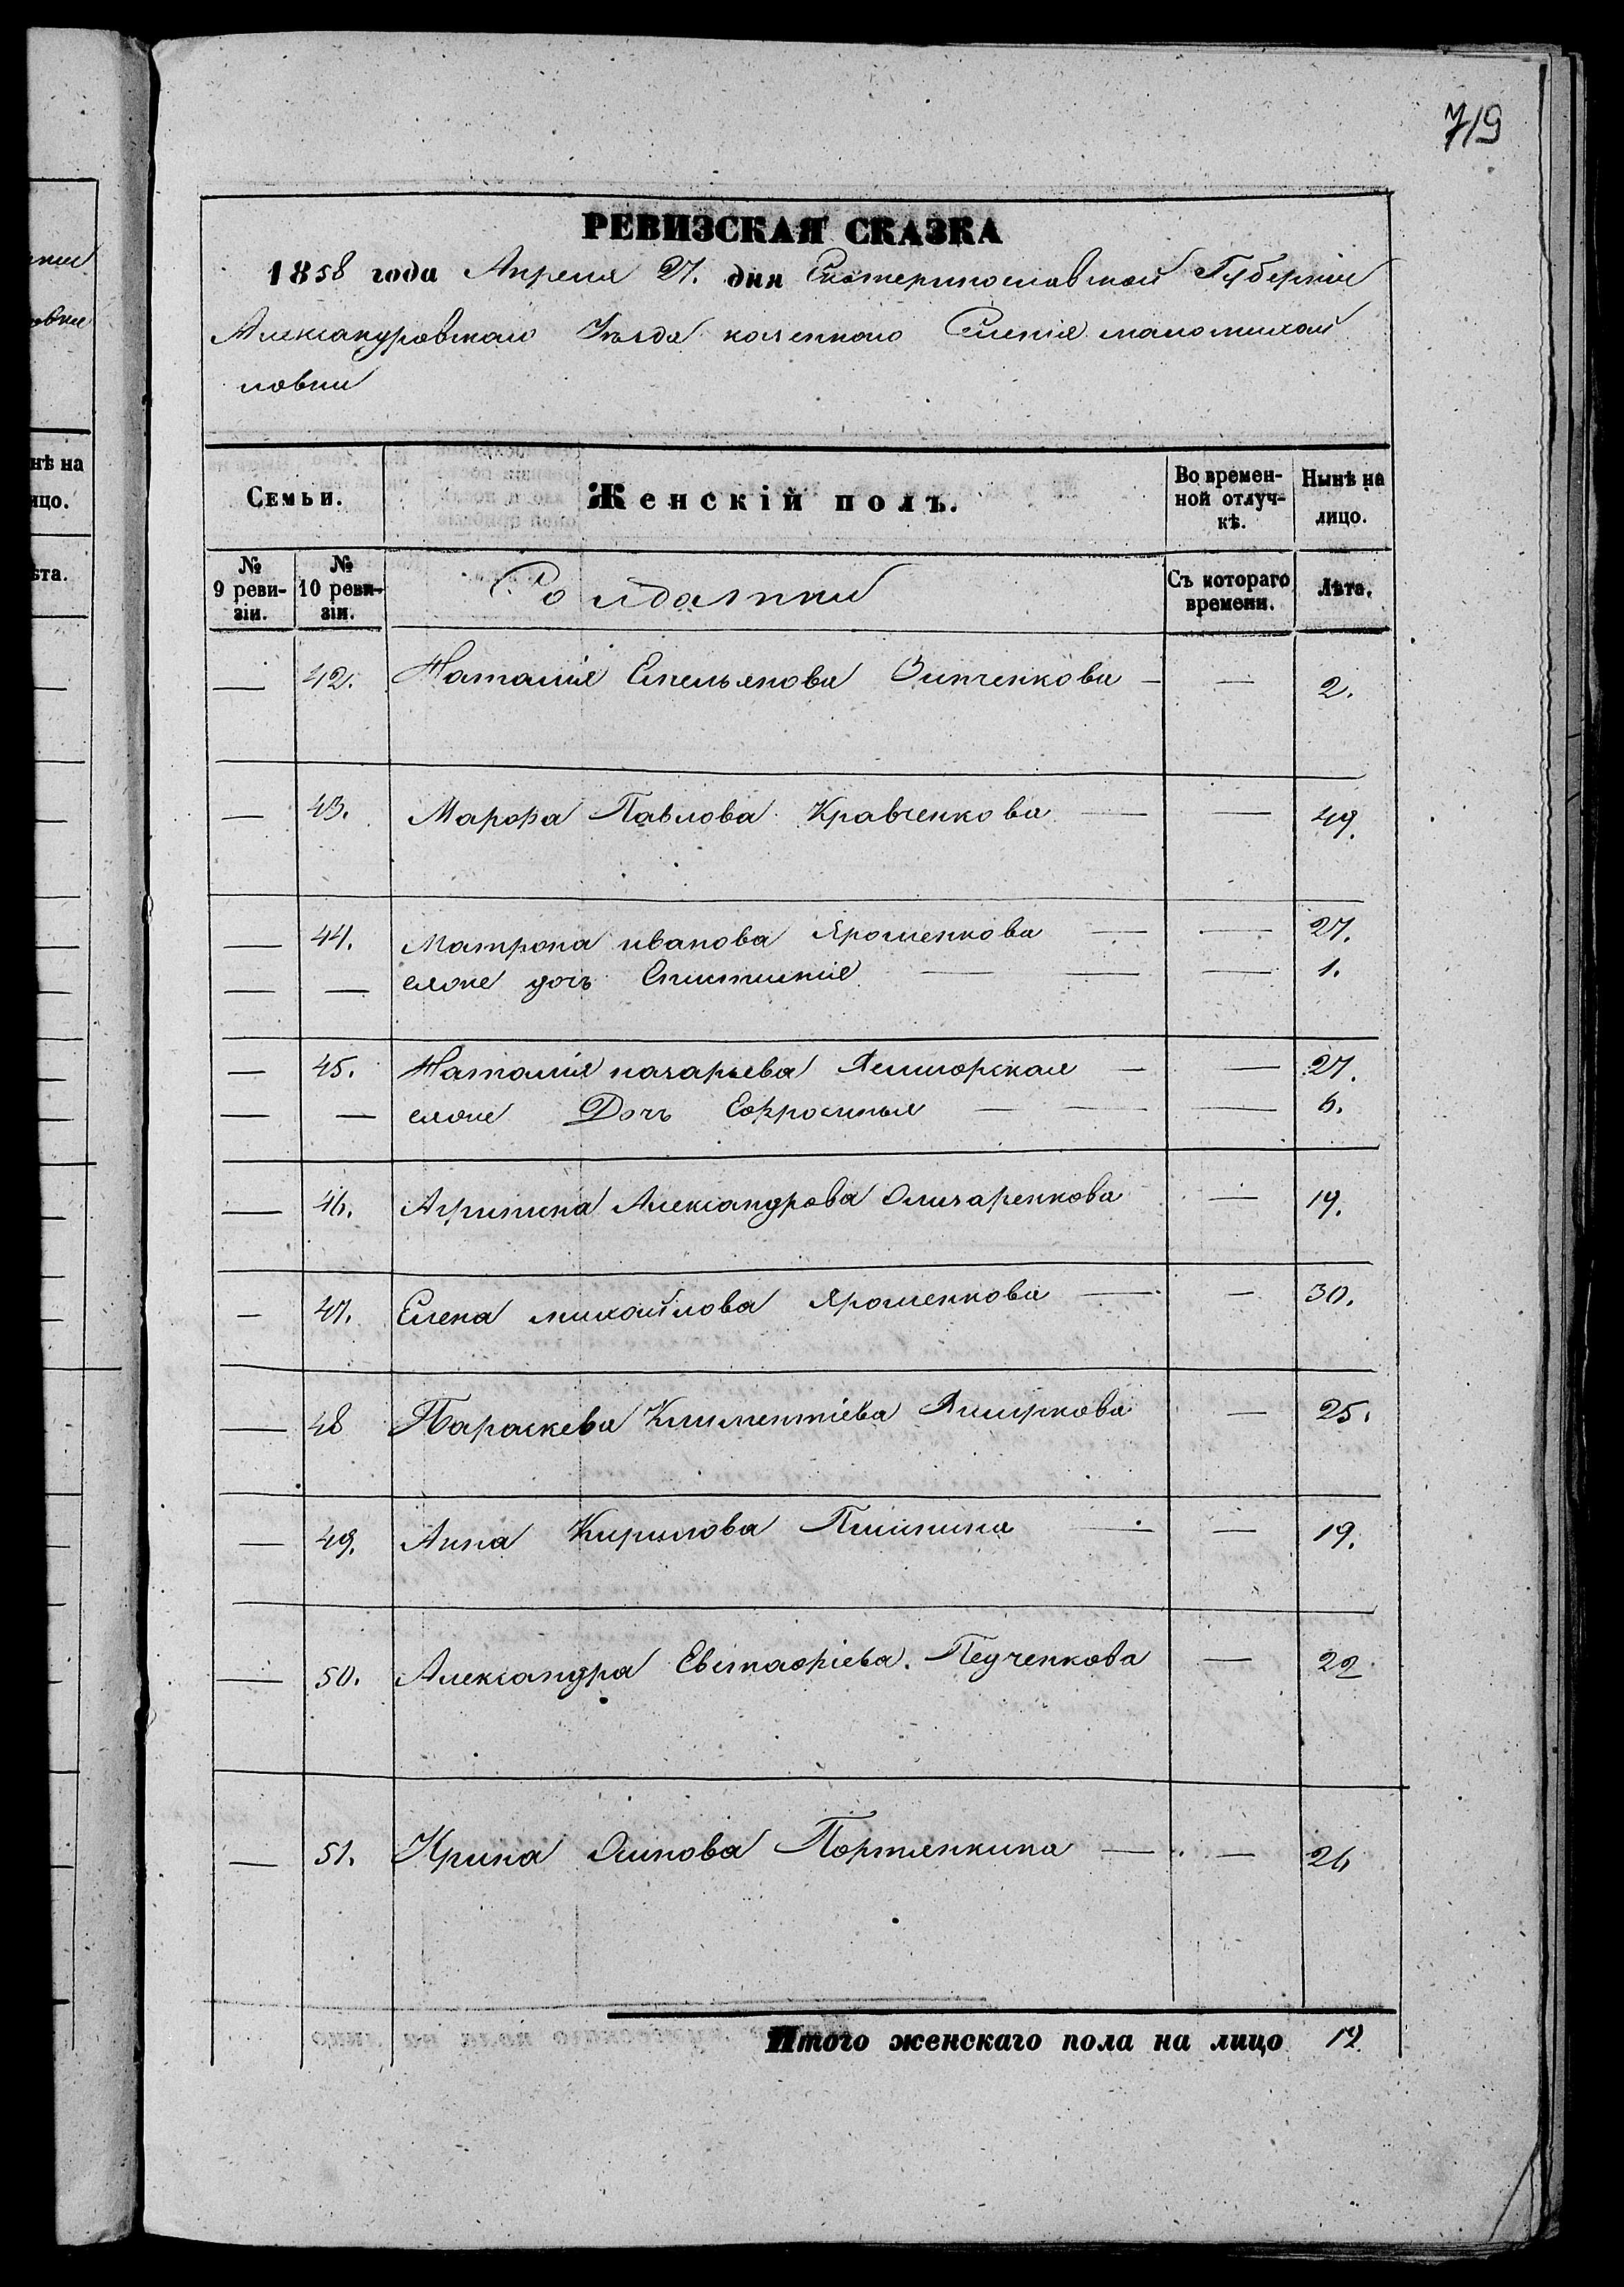 719
РЕВИЗСКАЯ СКАЗКА
1858 года Апреля 27. дня Екатеринославской Губерніи
Александровскаго Уѣзда казеннаго Селенія маломихай
ловки
Семьи. Женскій полъ. Во времен-ной отлуч-кѣ. Нынѣ на лицо.
№ 9 реви-зіи. № 10 реви-зіи. Солдатки Съ котораго времени. Лѣта.
— 42. Наталія Емельянова — — 2.
— 43. Марфа Павлова Кравченкова — — 49.
— 44. Матрона иванова Ярошенкова — — 27.
— — еяже дочь — — — 1.
— 45. Наталія назарьева — — 27.
— — еяже Дочь Ефросинья — — — 6.
— 46. Агрипина Александрова — 19.
— 47. Елена михайлова Ярошенкова — — 30.
— 48 Параскева Климентіева — 25.
— 49. Анна Кирилова — — 19.
— 50. Александра Евстафіева. — 22
— 51. Ирина Осипова — — 26
Итого женскаго пола на лицо 12
нѣ на
ицо.
ѣта.